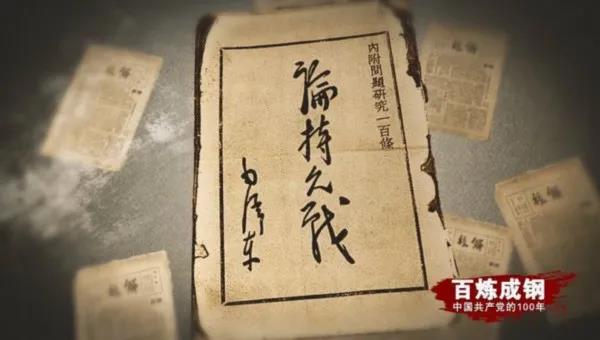 內附問題研究一百條
論持久戰
毛澤東
百炼成钢
中国共产党的100年